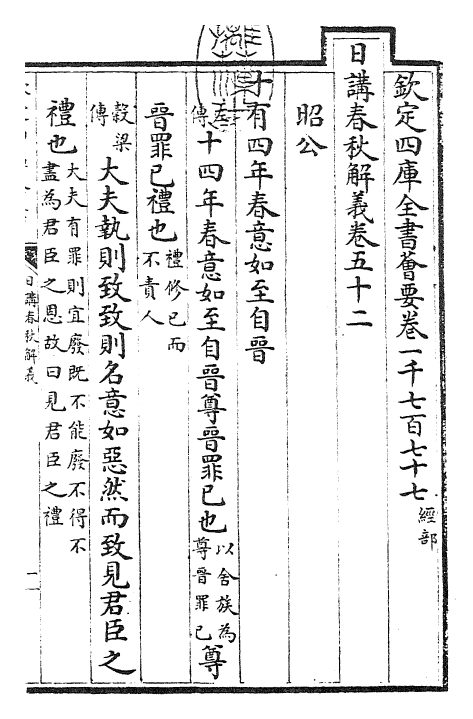 欽定四庫全書薈要卷一千七百七十七經部
日講春秋解義卷五十二
昭公
十有四年春意如至自晉
傳十四年春意如至自晉尊晉罪已也以舍族為尊晉罪已尊
晉罪已禮也禮修已而不責人
穀梁傳大夫執則致致則名意如惡然而致見君臣之
禮也大夫有罪則宜廢既不能廢不得不盡為君臣之恩故曰見君臣之禮
日講春秋解義